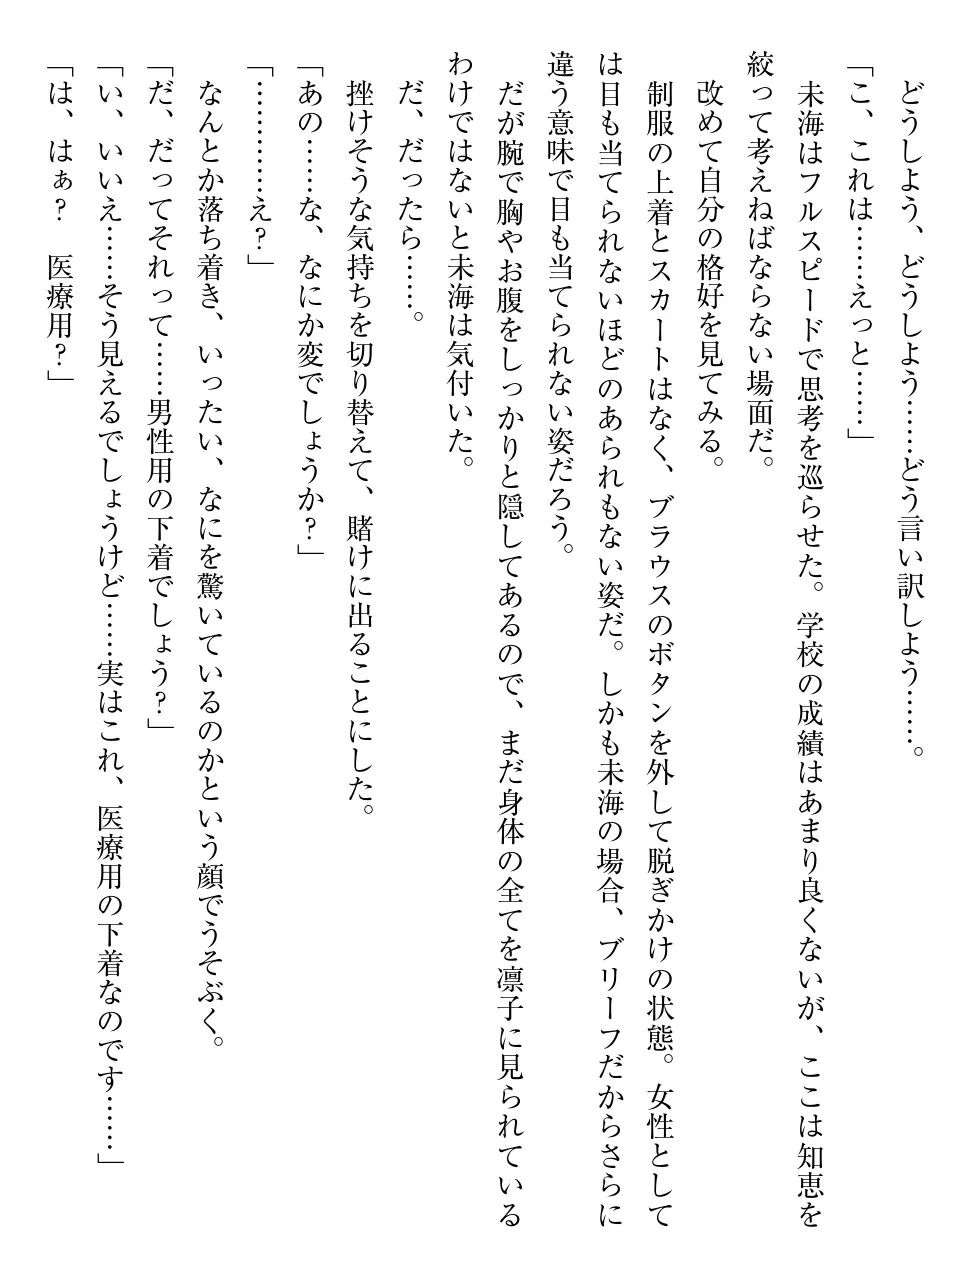 どうしよう、どうしよう……どう言い訳しよう……。
「こ、これは……えっと……」
未海はフルスピードで思考を巡らせた。学校の成績はあまり良くないが、ここは知恵を
絞って考えねばならない場面だ。
改めて自分の格好を見てみる。
制服の上着とスカートはなく、ブラウスのボタンを外して脱ぎかけの状態。女性として
は目も当てられないほどのあられもない姿だ。しかも未海の場合、ブリーフだからさらに
違う意味で目も当てられない姿だろう。
だが腕で胸やお腹をしっかりと隠してあるので、まだ身体の全てを凛子に見られている
わけではないと未海は気付いた。
だ、だったら……。
挫けそうな気持ちを切り替えて、賭けに出ることにした。
「あの……な、なにか変でしょうか？」
「…………え？」
なんとか落ち着き、いったい、なにを驚いているのかという顔でうそぶく。
「だ、だってそれって……男性用の下着でしょう？」
「い、いいえ……そう見えるでしょうけど……実はこれ、医療用の下着なのです……」
「は、はぁ？　医療用？」